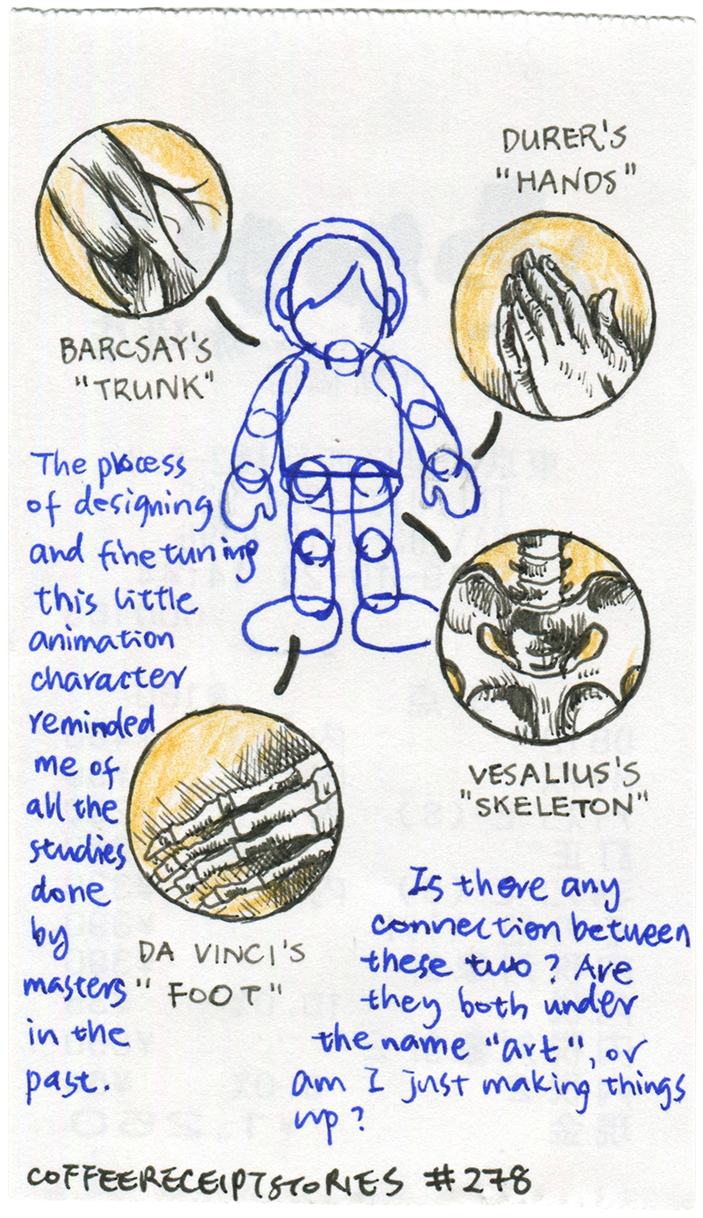 DURER'S
"HANDS"
BARCSAY'S
"TRUNK"
The process
of designing
and finetuning
this little
animation
character
reminded
me of
all the
studies
done
by
masters
in the
past.
VESALIUS'S
"SKELETON"
DA VINCI'S
"FOOT"
Is there any
connection between
these two? Are
they both under
the name "art", or
am I just making things
up?
COFFEERECEIPTSTORIES #278